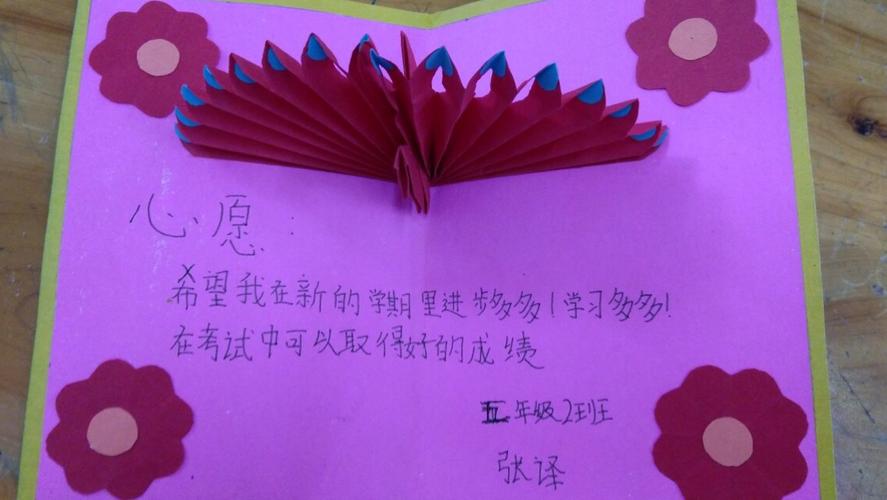 心愿:
希望我在新的学期里进步多多!学习多多!
在考试中可以取得好的成绩
五年级2班
张译